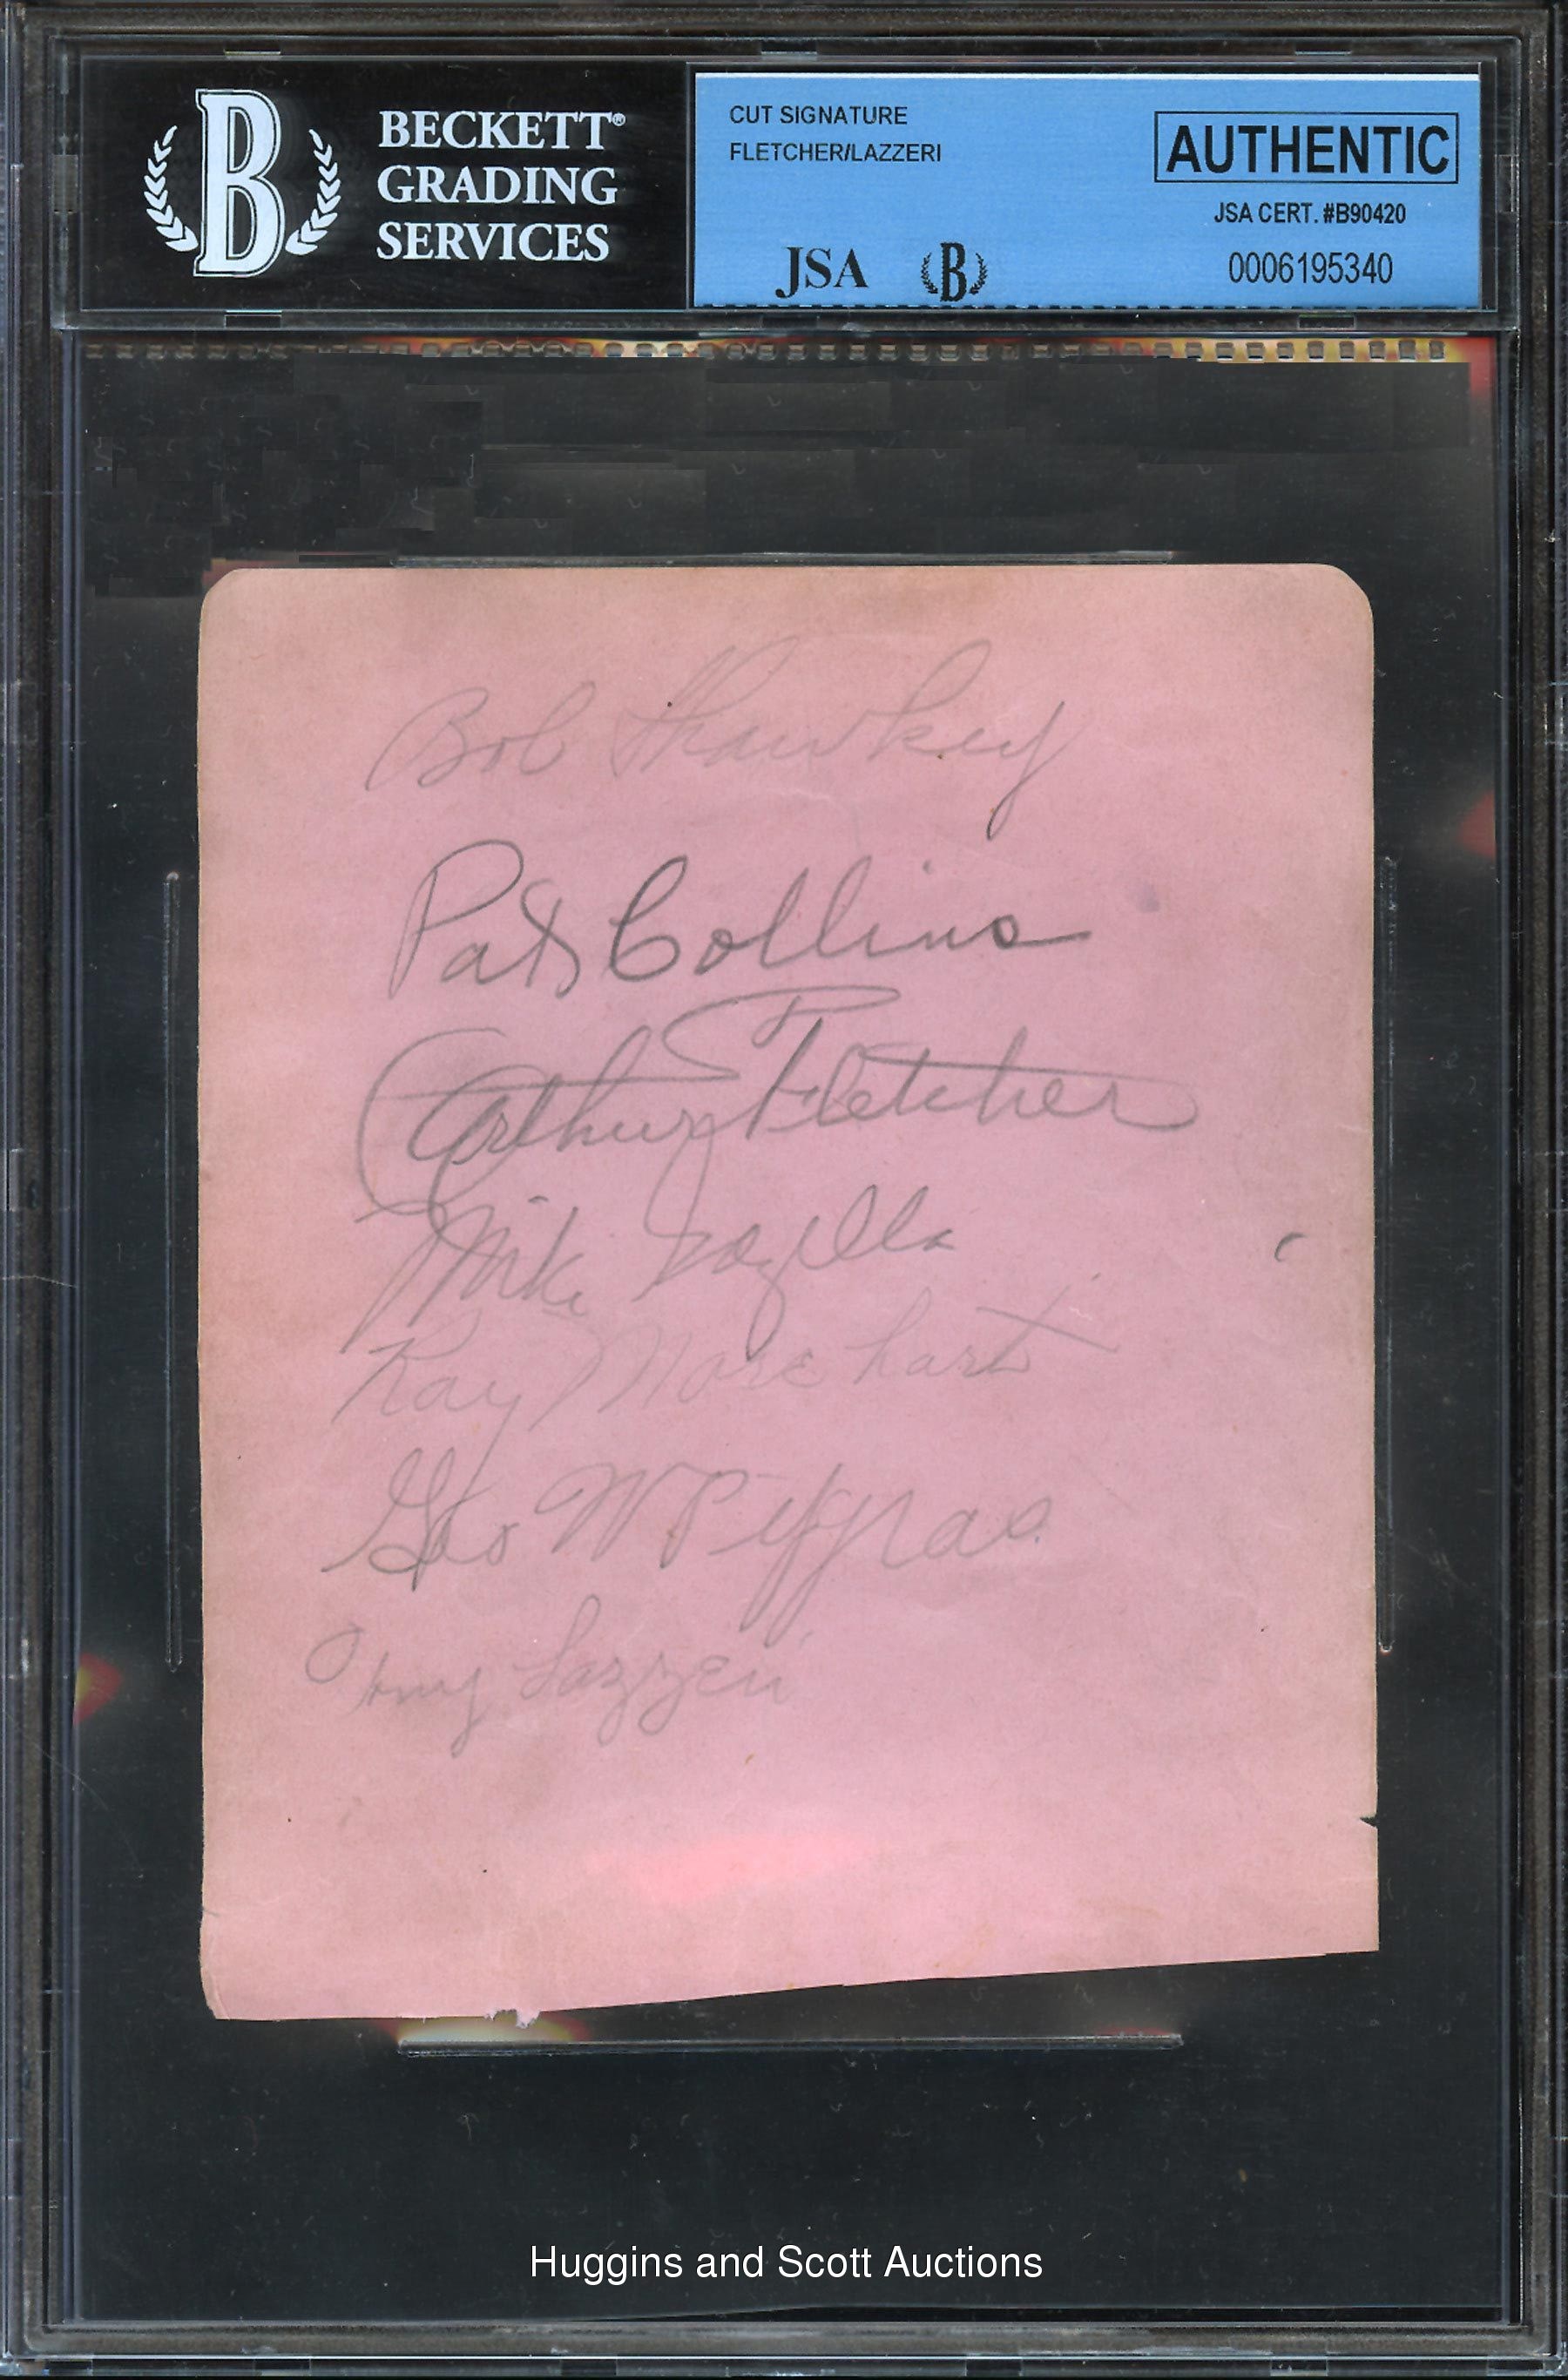 BECKETT®
GRADING
SERVICES
CUT SIGNATURE
FLETCHER/LAZZERI
AUTHENTIC
JSA CERT. #B90420
0006195340
JSA B
B
Bob Shawkey
Pat Collins
Arthur Fletcher
Mike Gazella
Ray Morehart
Geo W Pipgras
Tony Lazzeri
Huggins and Scott Auctions